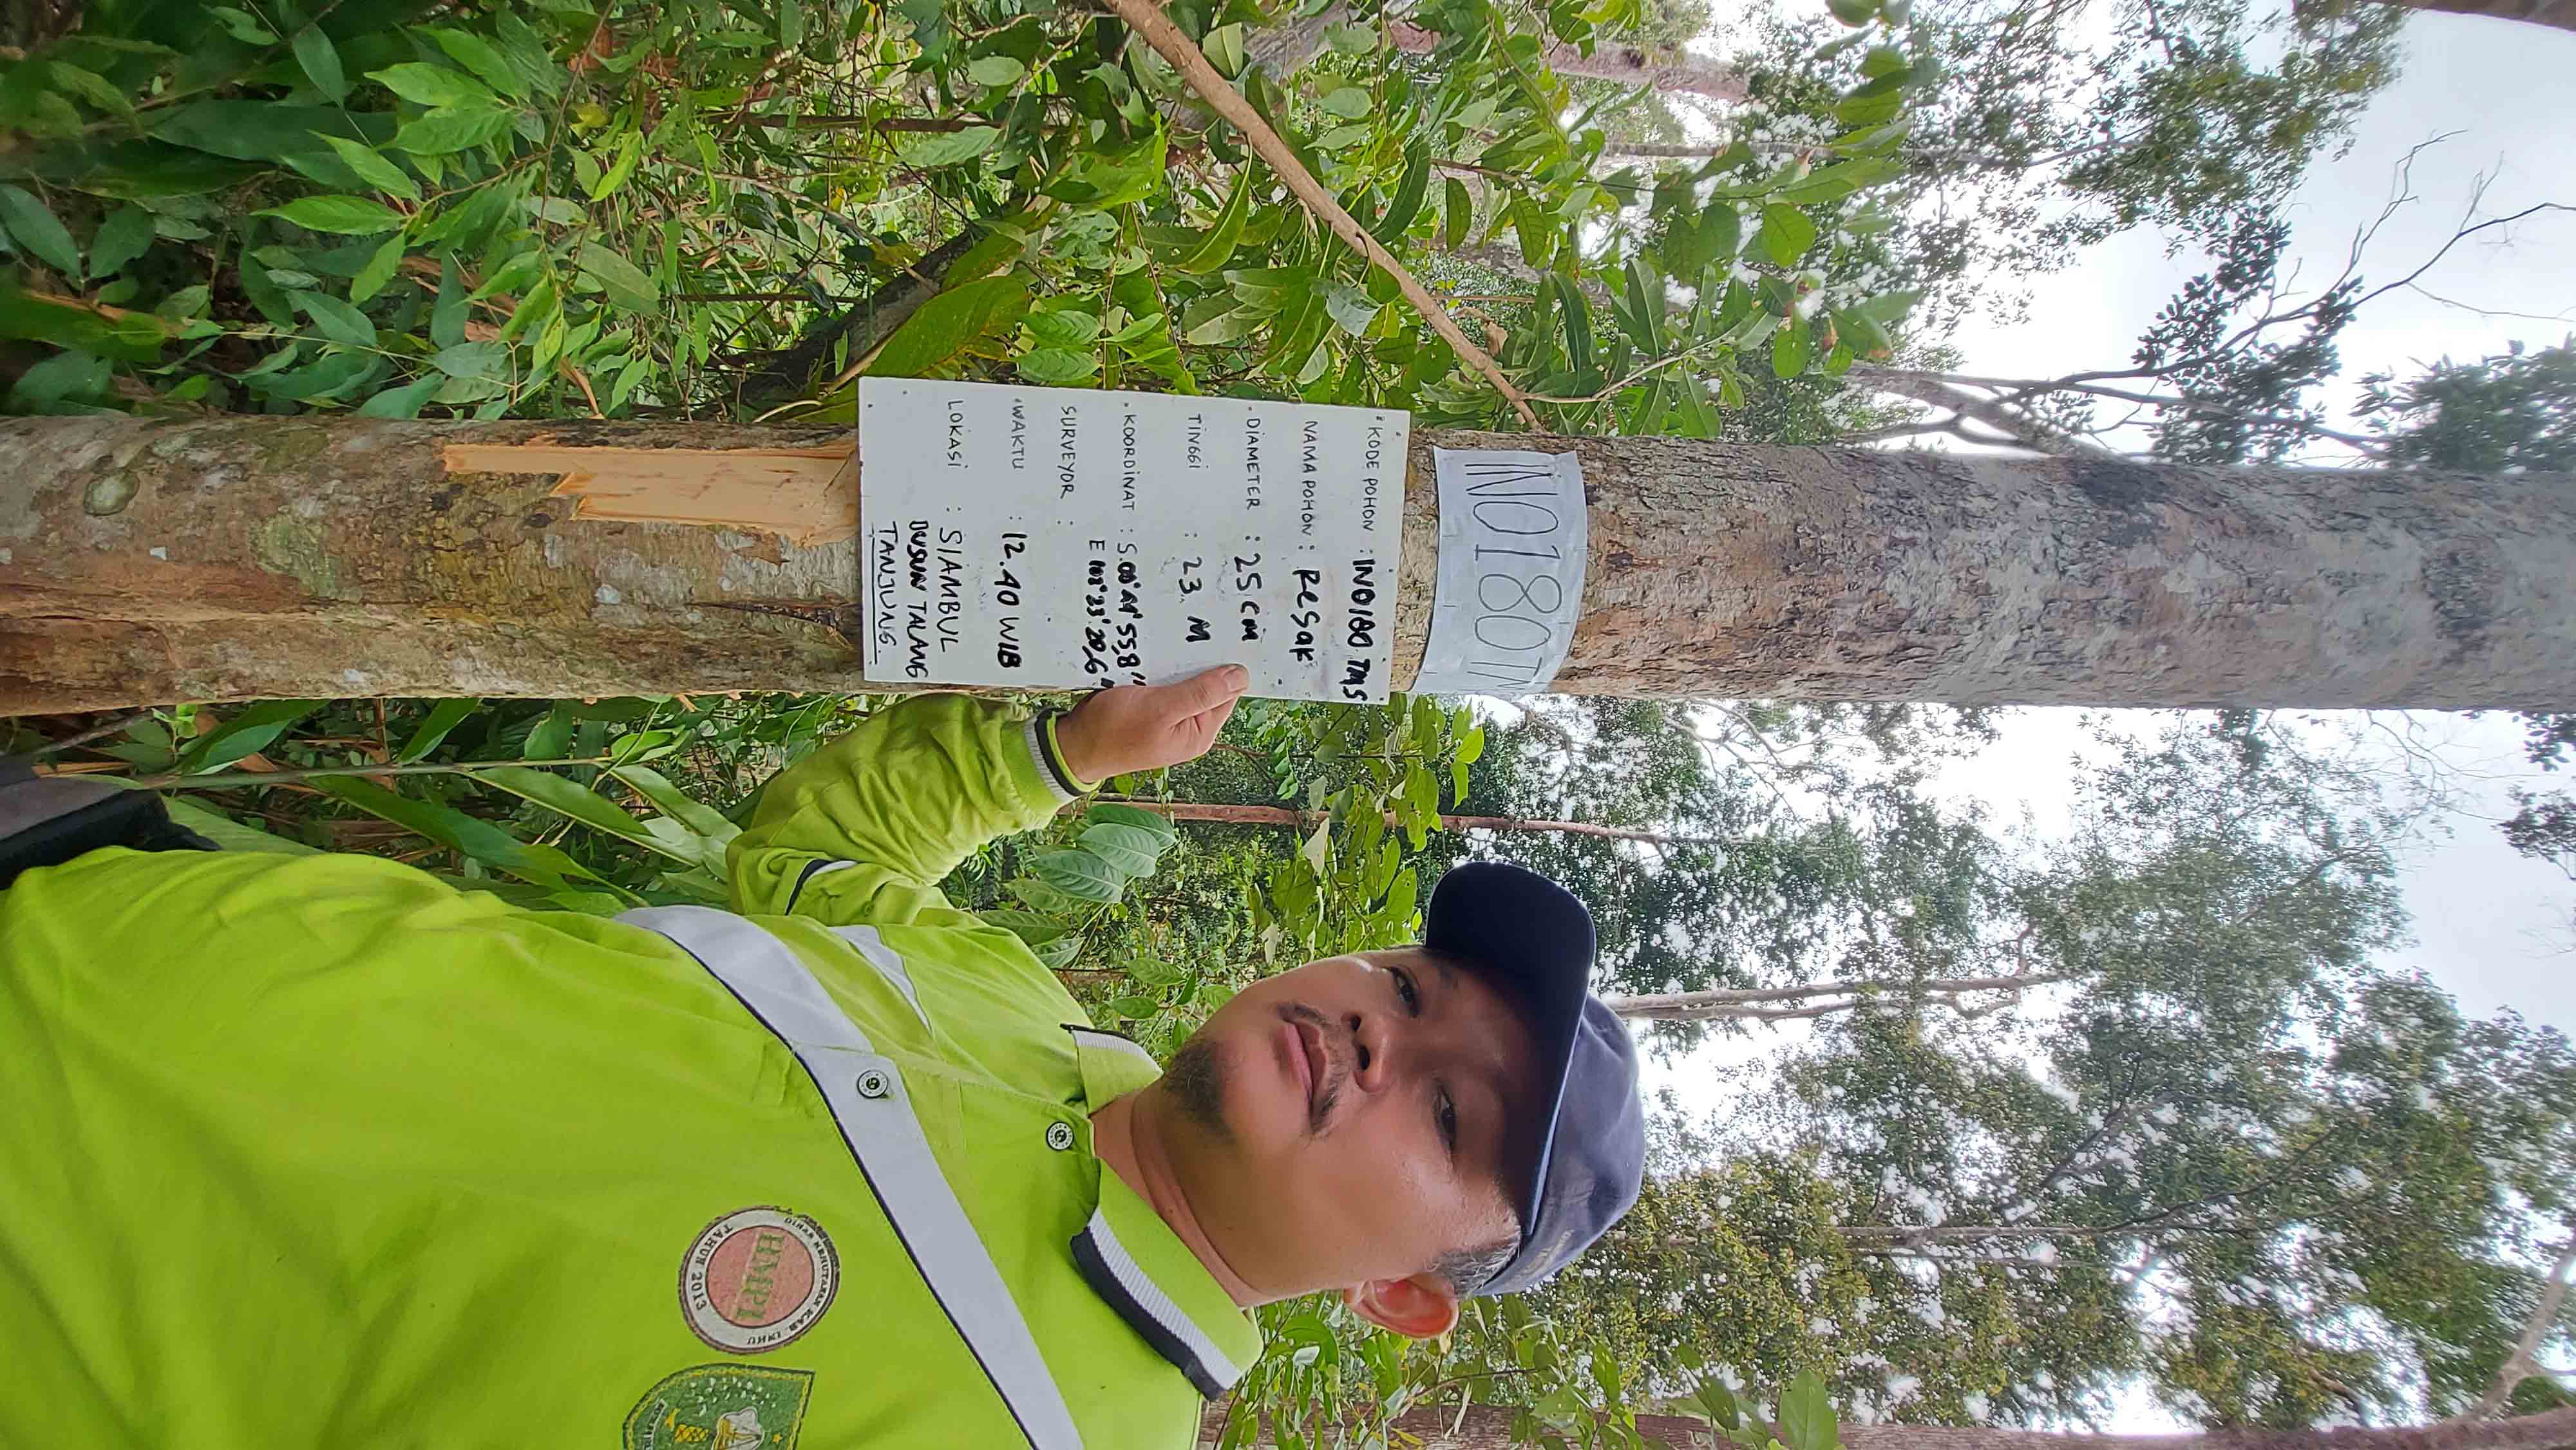 INO180TM
KODE POHON : INO180 TMS
NAMA POHON : Resak
DIAMETER : 25 CM
TINGGI : 23 M
KOORDINAT : S.00° 55,8"
E 102°23'20,6"
SURVEYOR :
WAKTU : 12.40 WIB
LOKASI : SIAMBUL
DUSUN TALANG
TANJUNG.
DINAS KEHUTANAN KAB INHU
HMPI
TAHUN 2013